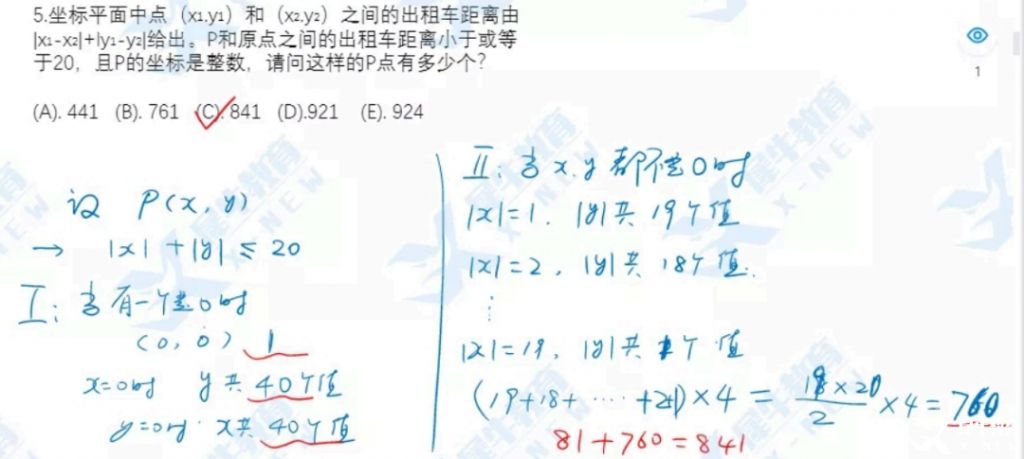 5.坐标平面中点（x₁.y₁）和（x₂.y₂）之间的出租车距离由
|x₁-x₂|+|y₁-y₂|给出。P和原点之间的出租车距离小于或等
于20，且P的坐标是整数，请问这样的P点有多少个？
1
(A). 441 (B). 761 (C). 841 (D).921 (E). 924
设 P(x, y)
→ |x|+|y|≤20
I: 当有一个是0时
(0, 0) 1
x=0时 y共40个值
y=0时. x共40个值
II: 当x.y都不是0时
|x|=1. |y|共19个值
|x|=2, |y|共18个值.
⋮
|x|=19, |y|共1个值
(19+18+……+2+1)×4 = 19×20/2 ×4=760
81+760=841
犀牛教育
X-NEW